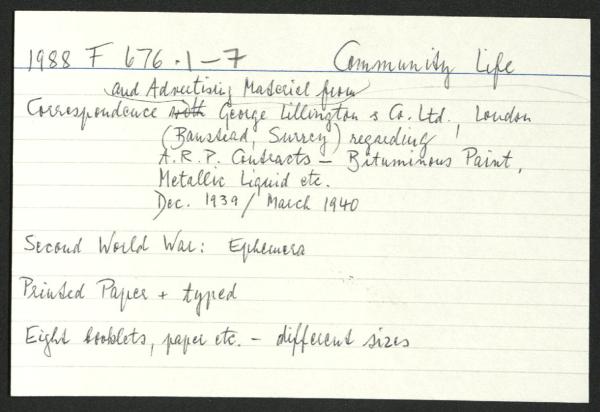 1988 F 676.1-7 Community Life
and Advertising Material from
Correspondence with George Lillington & Co. Ltd., London
(Banstead, Surrey) regarding
A.R.P. Contracts - Bituminous Paint,
Metallic Liquid etc.
Dec. 1939 / March 1940
Second World War: Ephemera
Printed Paper + typed
Eight booklets, paper etc. - different sizes